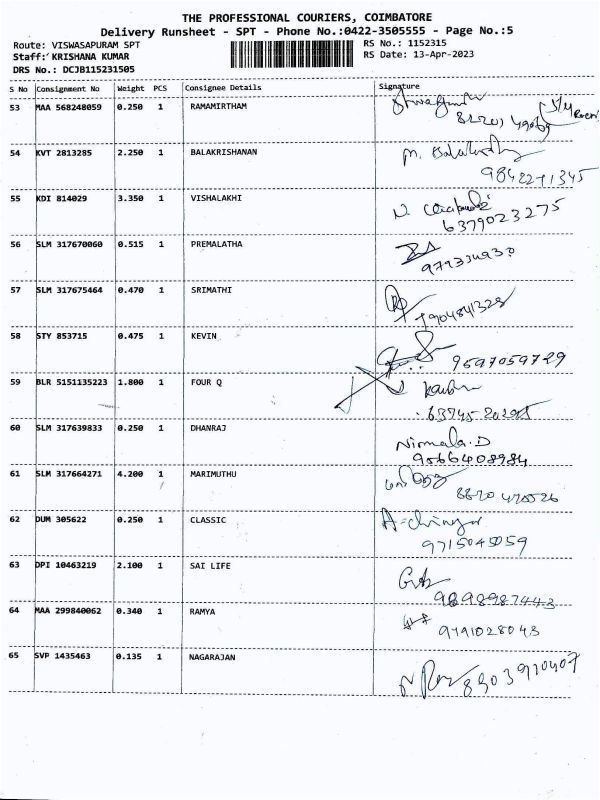 THE PROFESSIONAL COURIERS, COIMBATORE
Delivery Runsheet - SPT - Phone No.:0422-3505555 - Page No.:5
Route: VISWASAPURAM SPT RS No.: 1152315
Staff: KRISHANA KUMAR RS Date: 13-Apr-2023
DRS No.: DCJB115231505
S No Consignment No Weight PCS Consignee Details Signature
53 MAA 568248059 0.250 1 RAMAMIRTHAM
54 KVT 2813285 2.250 1 BALAKRISHANAN
55 KDI 814029 3.350 1 VISHALAKHI
6379023275
56 SLM 317670060 0.515 1 PREMALATHA
57 SLM 317675464 0.470 1 SRIMATHI
58 STY 853715 0.475 1 KEVIN
9597059729
59 BLR 5151135223 1.800 1 FOUR Q
60 SLM 317639833 0.250 1 DHANRAJ Nirmala.D
9566408984
61 SLM 317664271 4.200 1 MARIMUTHU
62 DUM 305622 0.250 1 CLASSIC
9715045059
63 DPI 10463219 2.100 1 SAI LIFE
9898987443
64 MAA 299840062 0.340 1 RAMYA
9791028043
65 SVP 1435463 0.135 1 NAGARAJAN
8903910407